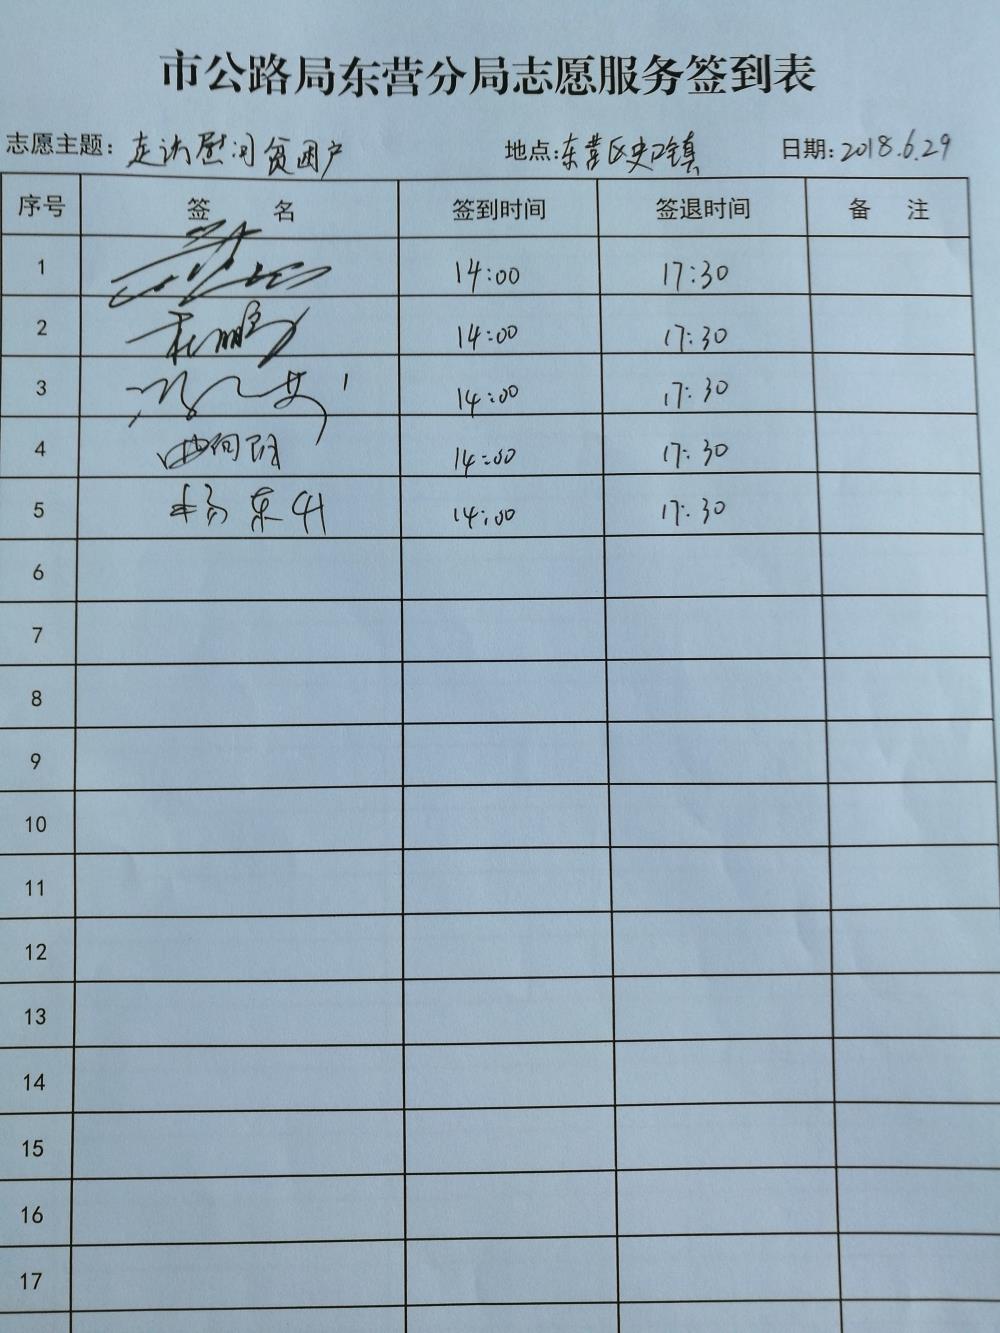 市公路局东营分局志愿服务签到表
志愿主题：走访慰问贫困户 地点：东营区史口镇 日期：2018.6.29
序号 签 名 签到时间 签退时间 备 注
1 14:00 17:30
2 杜鹏 14:00 17:30
3 14:00 17:30
4 曲向阳 14:00 17:30
5 杨东升 14:00 17:30
6
7
8
9
10
11
12
13
14
15
16
17